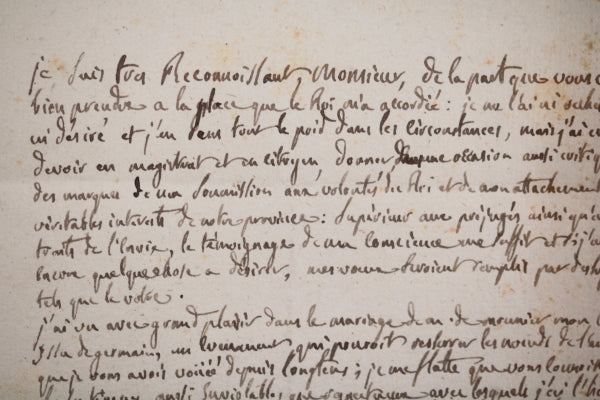 je suis tres Reconnoissant, Monsieur, de la part que vous
bien prendre a la place que le Roi m'a accordée : je ne l'ai ni
ni désiré et j'en sens tout le poid dans les circonstances, mais j'ai
devoir en magistrat et en citoyen donner, occasion aussi
des marques de ma soumission aux volontés du Roi et de mon attachement
véritables interets de notre province : Supérieur aux préjugés ainsi qu'
traits de l'Envie, le témoignage de ma conscience me suffit et
Encore quelque chose a désirer, mes voeux seroient remplis par
tels que le votre.
j'ai vu avec grand plaisir dans le mariage de mr de mon
Issu de germain, un Evenement qui pouroit resserrer les noeuds de
que je vous avois voüée depuis longtems ; je me flatte que vous
aussi inviolables que avec lesquels j'ai